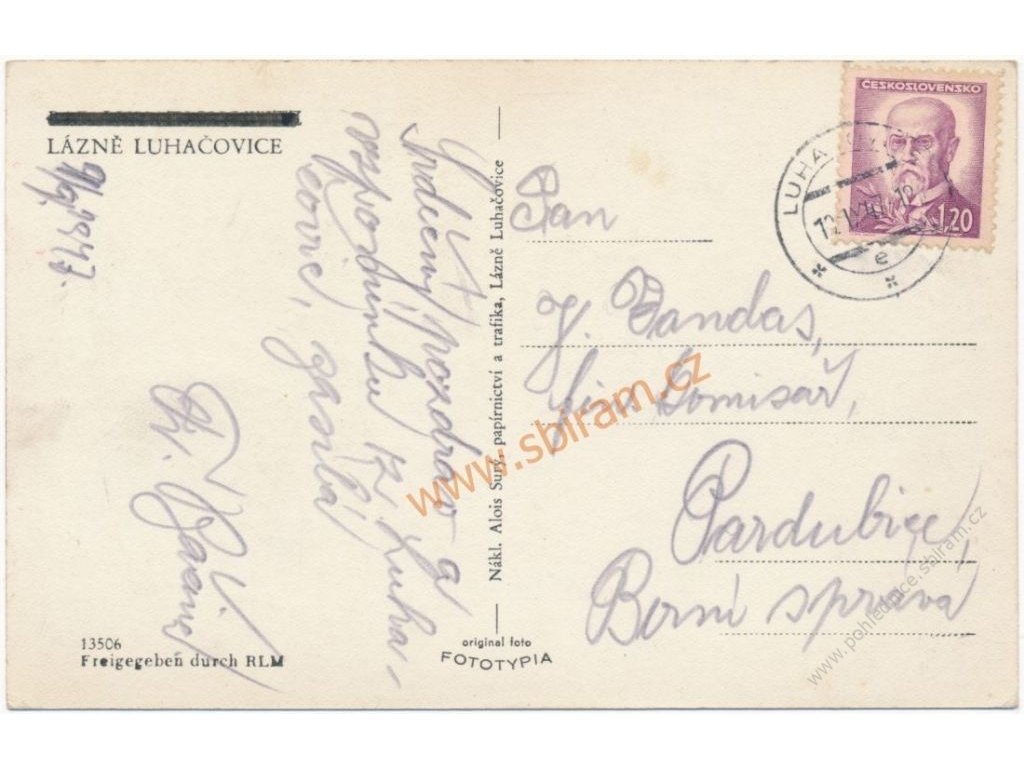 LÁZNĚ LUHAČOVICE
1947.
Srdečný pozdrav a
vzpomínku z Luha-
čovic, zasílá
Fr.
13506
Freigegeben durch RLM
Nákl. Alois Surý, papírnictví a trafika, Lázně Luhačovice
original foto
FOTOTYPIA
ČESKOSLOVENSKO
1.20
LUHA
12
e
Pan
J. Jandas,
fin. komisař,
Pardubice,
Berní správa
www.sbiram.cz
www.pohlednice.sbiram.cz